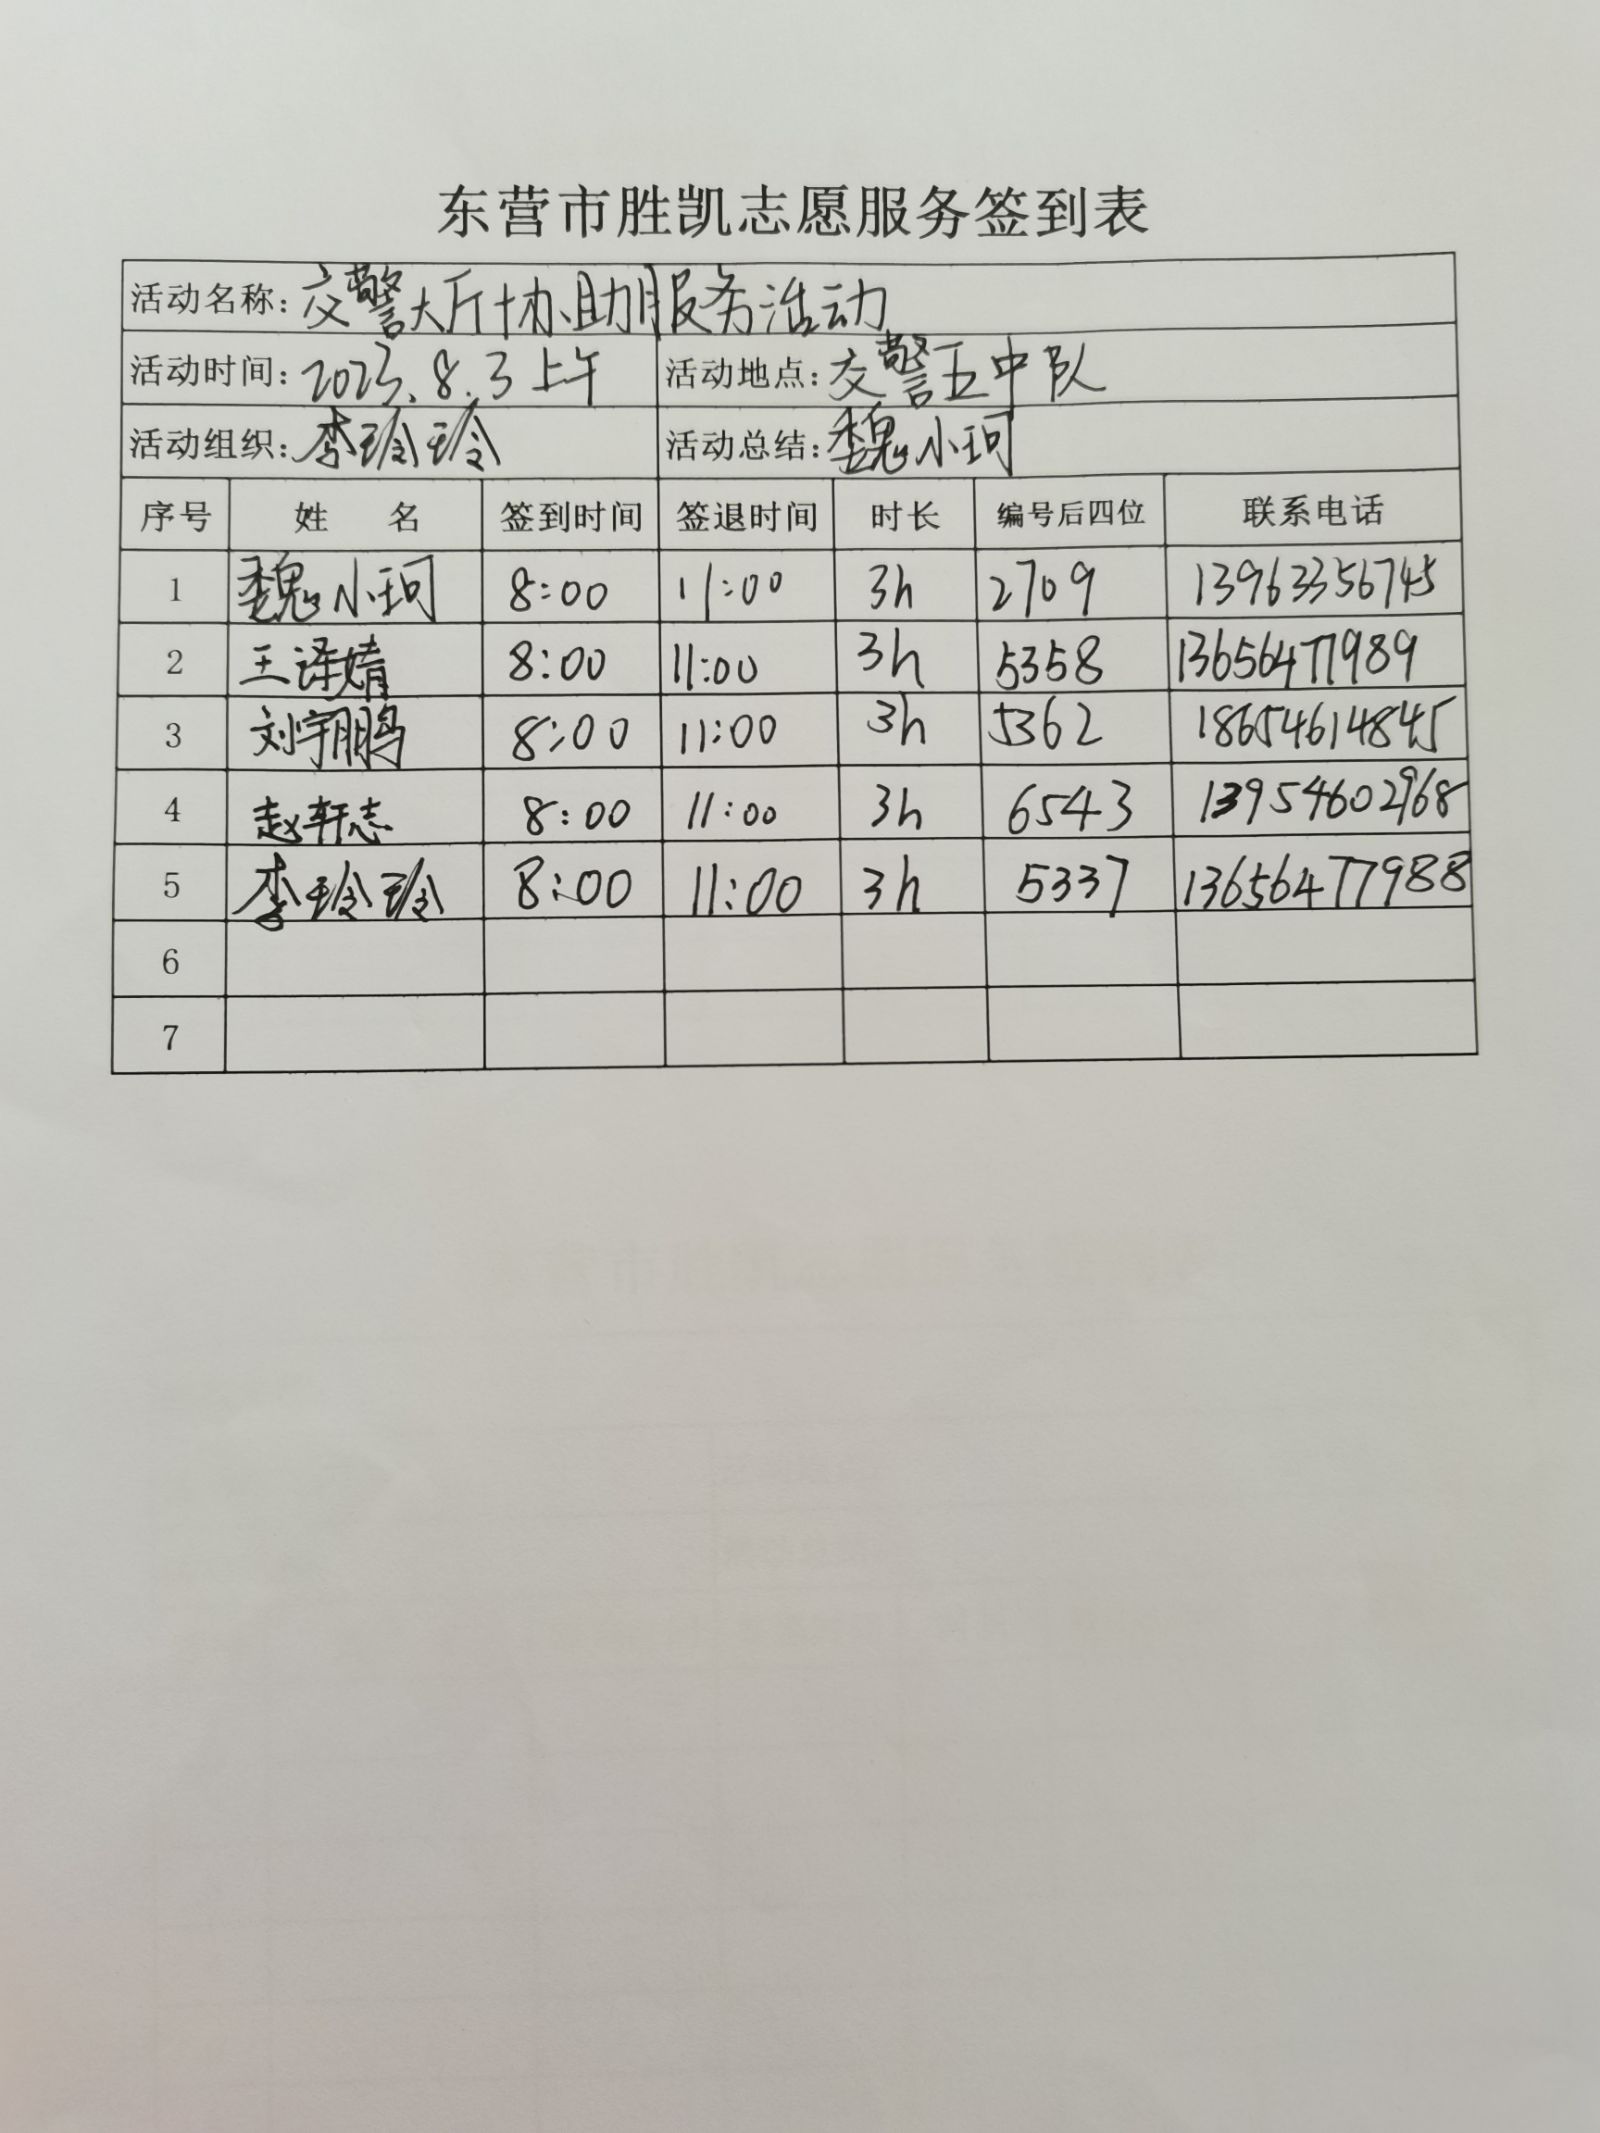 东营市胜凯志愿服务签到表
活动名称：交警大厅协助服务活动
活动时间：2023.8.3上午 活动地点：交警五中队
活动组织：李玲玲 活动总结：魏小珂
序号 姓 名 签到时间 签退时间 时长 编号后四位 联系电话
1 魏小珂 8:00 11:00 3h 2709 13963356745
2 王译婧 8:00 11:00 3h 5358 13656477989
3 刘宇鹏 8:00 11:00 3h 5362 18654614845
4 赵轩志 8:00 11:00 3h 6543 13954602968
5 李玲玲 8:00 11:00 3h 5337 13656477988
6
7